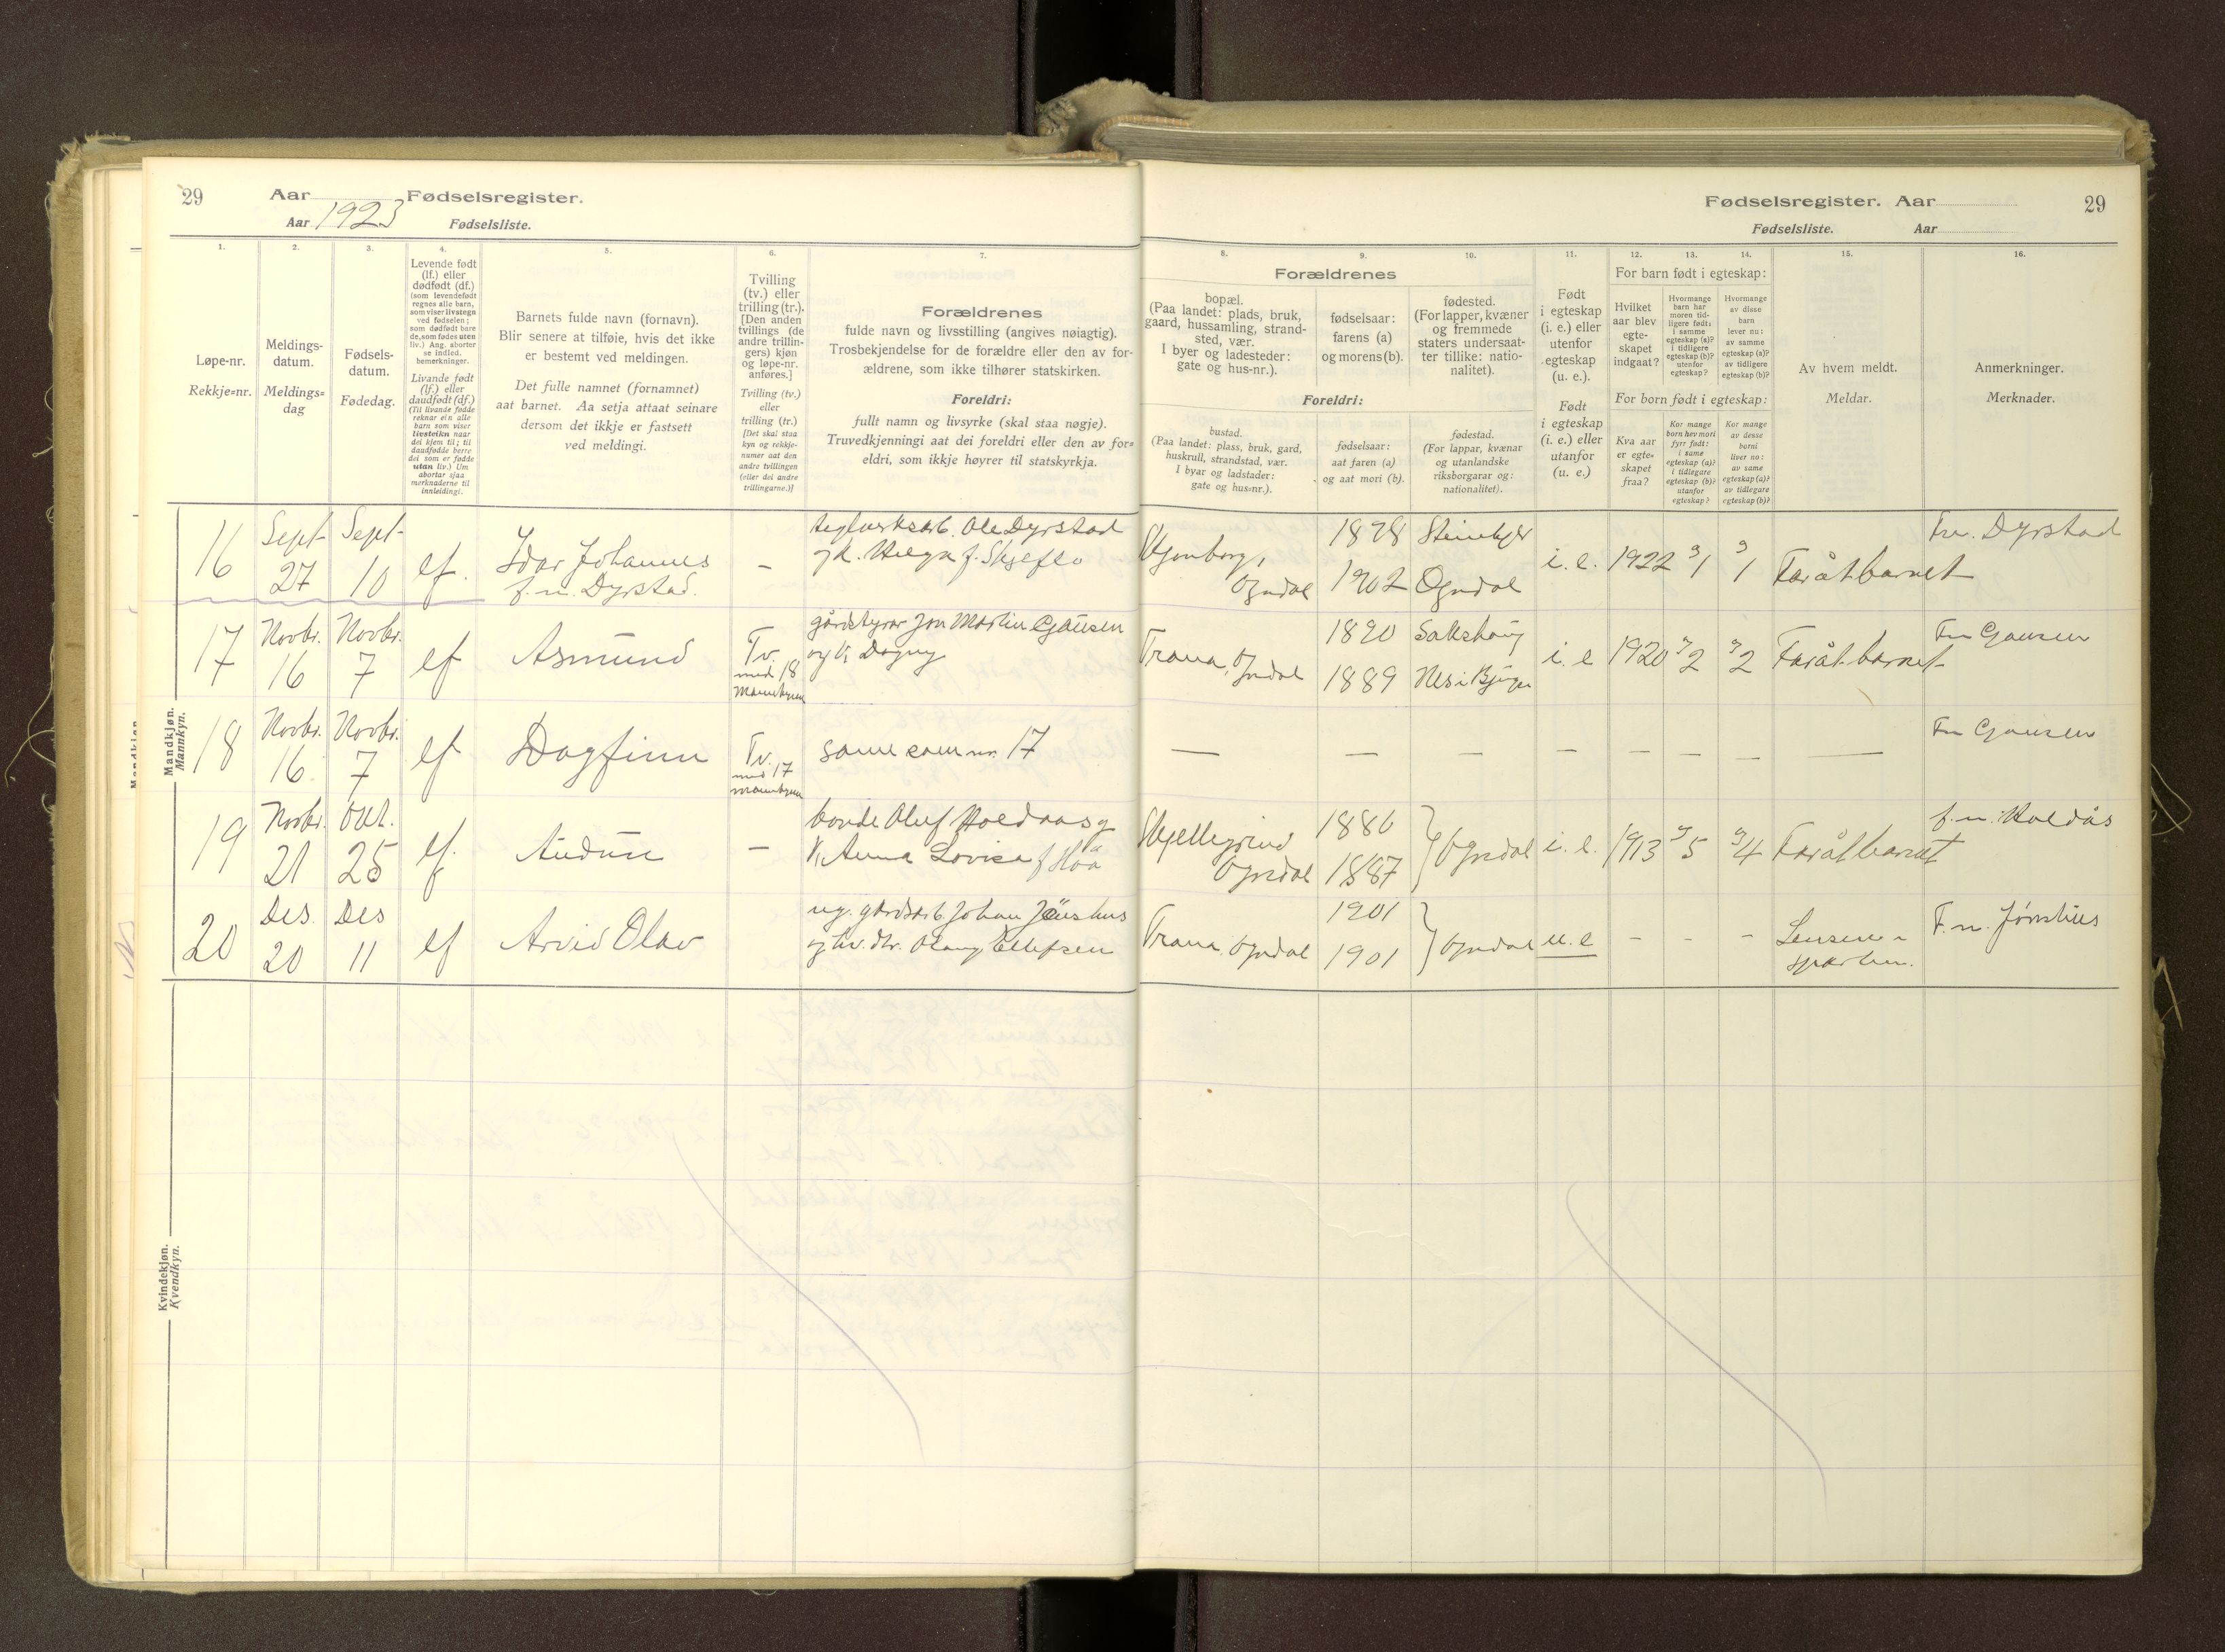 29
Aar Fødselsregister.
Aar 1923 Fødselsliste.
Fødselsregister. Aar
29
Fødselsliste. Aar
1.
Løpe-nr.
Rekkje=nr.
2.
Meldings-
datum.
Meldings=
dag
3.
Fødsels-
datum.
Fødedag.
4.
Levende født
(lf.) eller
dødfødt (df.)
(som levendefødt
regnes alle barn,
som viser livstegn
ved fødselen;
som dødfødt bare
de, som fødes uten
liv.) Ang. aborter
se indled.
bemerkninger.
Livande født
(lf.) eller
daudfødt (df.)
(Til livande fødde
reknar ein alle
barn som viser
livsteikn naar
dei kjem til; til
daudfødde berre
dei som er fødde
utan liv.) Um
abortar sjaa
merknaderne til
innleidingi.
5.
Barnets fulde navn (fornavn).
Blir senere at tilføie, hvis det ikke
er bestemt ved meldingen.
Det fulle namnet (fornamnet)
aat barnet. Aa setja attaat seinare
dersom det ikkje er fastsett
ved meldingi.
6.
Tvilling
(tv.) eller
trilling (tr.).
[Den anden
tvillings (de
andre trillin-
gers) kjøn
og løpe-nr.
anføres.]
Tvilling (tv.)
eller
trilling (tr.)
[Det skal staa
kyn og rekkje-
numer aat den
andre tvillingen
(eller dei andre
trillingarne.)]
7.
Forældrenes
fulde navn og livsstilling (angives nøiagtig).
Trosbekjendelse for de forældre eller den av for-
ældrene, som ikke tilhører statskirken.
Foreldri:
fullt namn og livsyrke (skal staa nøgje).
Truvedkjenningi aat dei foreldri eller den av for=
eldri, som ikkje høyrer til statskyrkja.
8.
Forældrenes
bopæl.
(Paa landet: plads, bruk,
gaard, hussamling, strand-
sted, vær.
I byer og ladesteder:
gate og hus-nr.).
Foreldri:
bustad.
(Paa landet: plass, bruk, gard,
huskrull, strandstad, vær.
I byar og ladstader:
gate og hus=nr.).
9.
fødselsaar:
farens (a)
og morens (b).
fødselsaar:
aat faren (a)
og aat mori (b).
10.
fødested.
(For lapper, kvæner
og fremmede
staters undersaat-
ter tillike: natio-
nalitet).
fødestad.
(For lappar, kvænar
og utanlandske
riksborgarar og:
nationalitet).
11.
Født
i egteskap
(i. e.) eller
utenfor
egteskap
(u. e.).
Født
i egteskap
(i. e.) eller
utanfor
(u. e.)
12. 13. 14.
For barn født i egteskap:
Hvilket
aar blev
egte-
skapet
indgaat?
Hvormange
barn har
moren tid-
ligere født:
i samme
egteskap (a)?
i tidligere
egteskap (b)?
utenfor
egteskap?
Hvormange
av disse
barn
lever nu:
av samme
egteskap (a)?
av tidligere
egteskap (b)?
For born født i egteskap:
Kva aar
er egte-
skapet
fraa?
Kor mange
born hev mori
fyrr født:
i same
egteskap (a)?
i tidlegare
egteskap (b)?
utanfor
egteskap?
Kor mange
av desse
borni
liver no:
av same
egteskap (a)?
av tidlegare
egteskap (b)?
15.
Av hvem meldt.
Meldar.
16.
Anmerkninger.
Merknader.
Mandkjøn.
Mannkyn.
16 Sept 27 Sept 10 lf. Idar Johannes
f. n. Dyrstad.
- teglverksarb. Ole Dyrstad
og k. Helga f. Skjefte
Ogndal
1878 Steinkjer
1902 Ogndal
i. e. 1922 a/1 a/1 Far åt barnet
Fn. Dyrstad
17 Novbr. 16 Novbr. 7 lf Asmund
Tv.
med 18
Mannkyn
gårdstyrar Jon Martin Gausen
og k. Dagny
Trana, Ogndal
1890 Sakshaug
1889 Nes i Bjugn
i. e 1920 a/2 a/2 Far åt barnet
Fn Gausen
18 Novbr. 16 Novbr. 7 lf Dagfinn
Tv.
med 17
Mannkyn
same som nr. 17
— — — — — — — —
Fn Gausen
19 Novbr. 21 Okt. 25 lf. Audun
- bonde Oluf Holdaas og
k. Anna Lovisa f Hoå
Skjellegrind
Ogndal
1886
1887
Ogndal i. e. 1913 a/5 a/4 Far åt barnet
f. n. Holdås
20 Des. 20 Des 11 lf Arvid Olav
ug. gårdsarb. Johan Jönshus
og hv. dtr. Olaug Ellefsen
Trana, Ogndal
1901
1901
Ogndal u. e - - -
F. n. Jönshus
Kvindekjøn.
Kvendkyn.